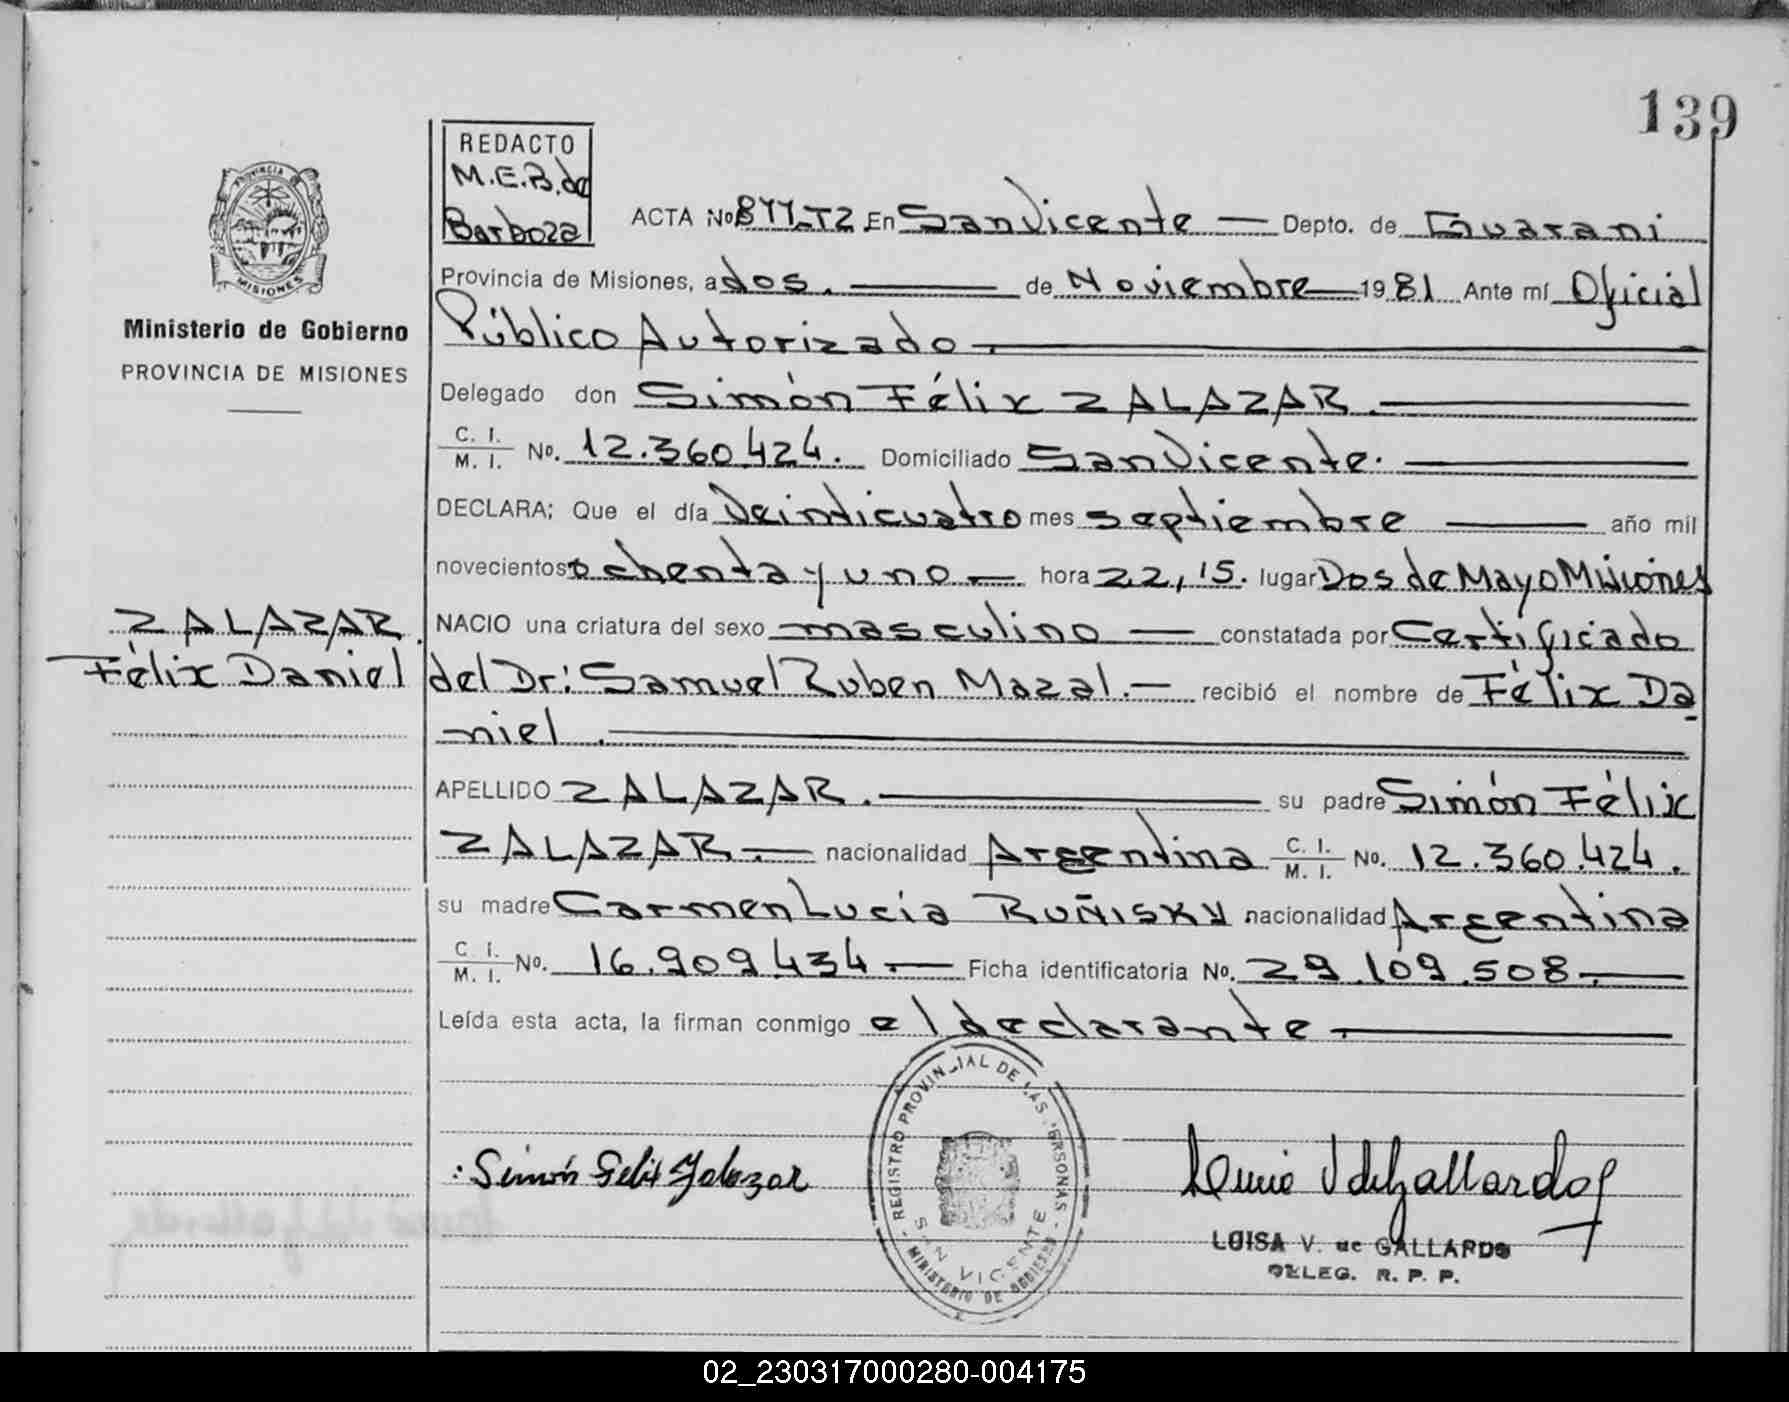 139
REDACTO
M.E.B.de
Barboza
PROVINCIA DE MISIONES
Ministerio de Gobierno
PROVINCIA DE MISIONES
ACTA No 844-T2 En San Vicente — Depto. de Guarani
Provincia de Misiones, a dos. — de Noviembre — 1981 Ante mí Oficial
Público Autorizado. —
Delegado don Simón Félix ZALAZAR. —
C. I. / M. I. No. 12.360.424. Domiciliado San Vicente. —
DECLARA; Que el día Veinticuatro mes septiembre — año mil
novecientos ochenta y uno — hora 22,15. lugar Dos de Mayo Misiones
NACIO una criatura del sexo masculino — constatada por Certificado
del Dr: Samuel Ruben Mazal. — recibió el nombre de Félix Da-
niel. —
ZALAZAR.
Félix Daniel
APELLIDO ZALAZAR. — su padre Simón Félix
ZALAZAR. — nacionalidad Argentina C. I. / M. I. No. 12.360.424.
su madre Carmen Lucia RUÑISKY nacionalidad Argentina
C. I. / M. I. No. 16.909.434. — Ficha identificatoria No. 29.109.508. —
Leída esta acta, la firman conmigo el declarante. —
REGISTRO PROVINCIAL DE LAS PERSONAS
SAN VICENTE
MINISTERIO DE GOBIERNO
Simón Felix Zalazar
LUISA V. de GALLARDO
DELEG. R. P. P.
02_230317000280-004175